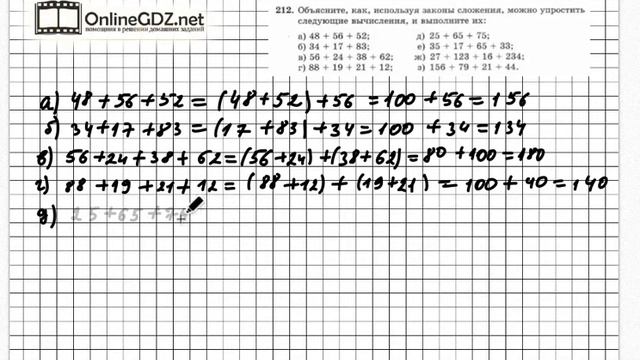 OnlineGDZ.net
помощники в решении домашних заданий
212. Объясните, как, используя законы сложения, можно упростить
следующие вычисления, и выполните их:
а) 48 + 56 + 52; д) 25 + 65 + 75;
б) 34 + 17 + 83; е) 35 + 17 + 65 + 33;
в) 56 + 24 + 38 + 62; ж) 27 + 123 + 16 + 234;
г) 88 + 19 + 21 + 12; з) 156 + 79 + 21 + 44.
а) 48+56+52 = (48+52)+56 = 100 +56 = 156
б) 34+17+83 = (17+83)+34 = 100 +34 = 134
в) 56+24+38+62=(56+24)+(38+62)=80+100=180
г) 88+19+21+12=(88+12)+(19+21) = 100+40=140
д) 25+65+75